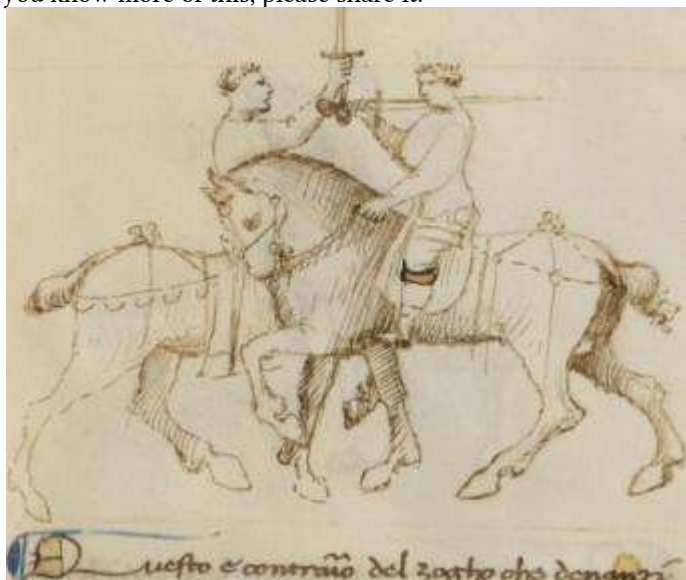 you know more of this, please share it.
Questo e contraiio del zogho che denanzi